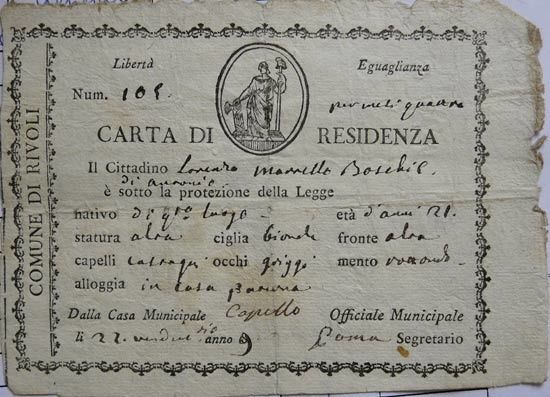 COMUNE DI RIVOLI
Libertà Eguaglianza
Num. 105. per mesi quattro
CARTA DI RESIDENZA
Il Cittadino Lorenzo Marcello Boschis
è sotto la protezione della Legge
nativo di q.to luogo età d'anni 21.
statura alta ciglia bionde fronte alta
capelli castagni occhi griggi mento rotondo
alloggia in casa
Dalla Casa Municipale Capello Officiale Municipale
li 22 anno 9 Segretario